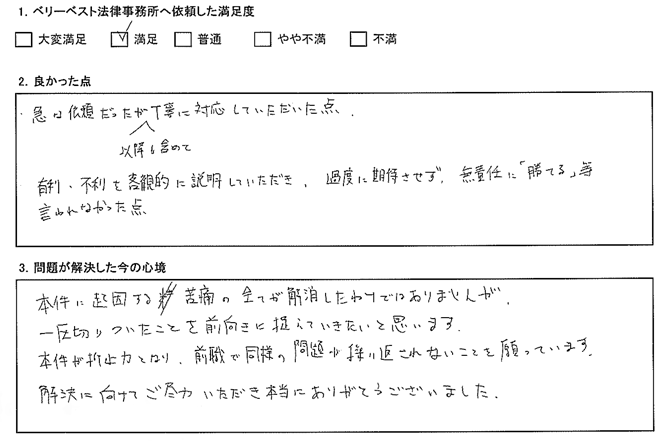 1. ベリーベスト法律事務所へ依頼した満足度
大変満足 満足 普通 やや不満 不満
2. 良かった点
・急な依頼だったが丁寧に対応していただいた点.
以降も含めて
有利・不利を客観的に説明していただき、過度に期待させず、無責任に「勝てる」等
言われなかった点
3. 問題が解決した今の心境
本件に起因する 苦痛の全てが解消したわけではありませんが、
一区切りついたことを前向きに捉えていきたいと思います.
本件が抑止力となり、前職で同様の問題が繰り返されないことを願っています.
解決に向けてご尽力いただき本当にありがとうございました.